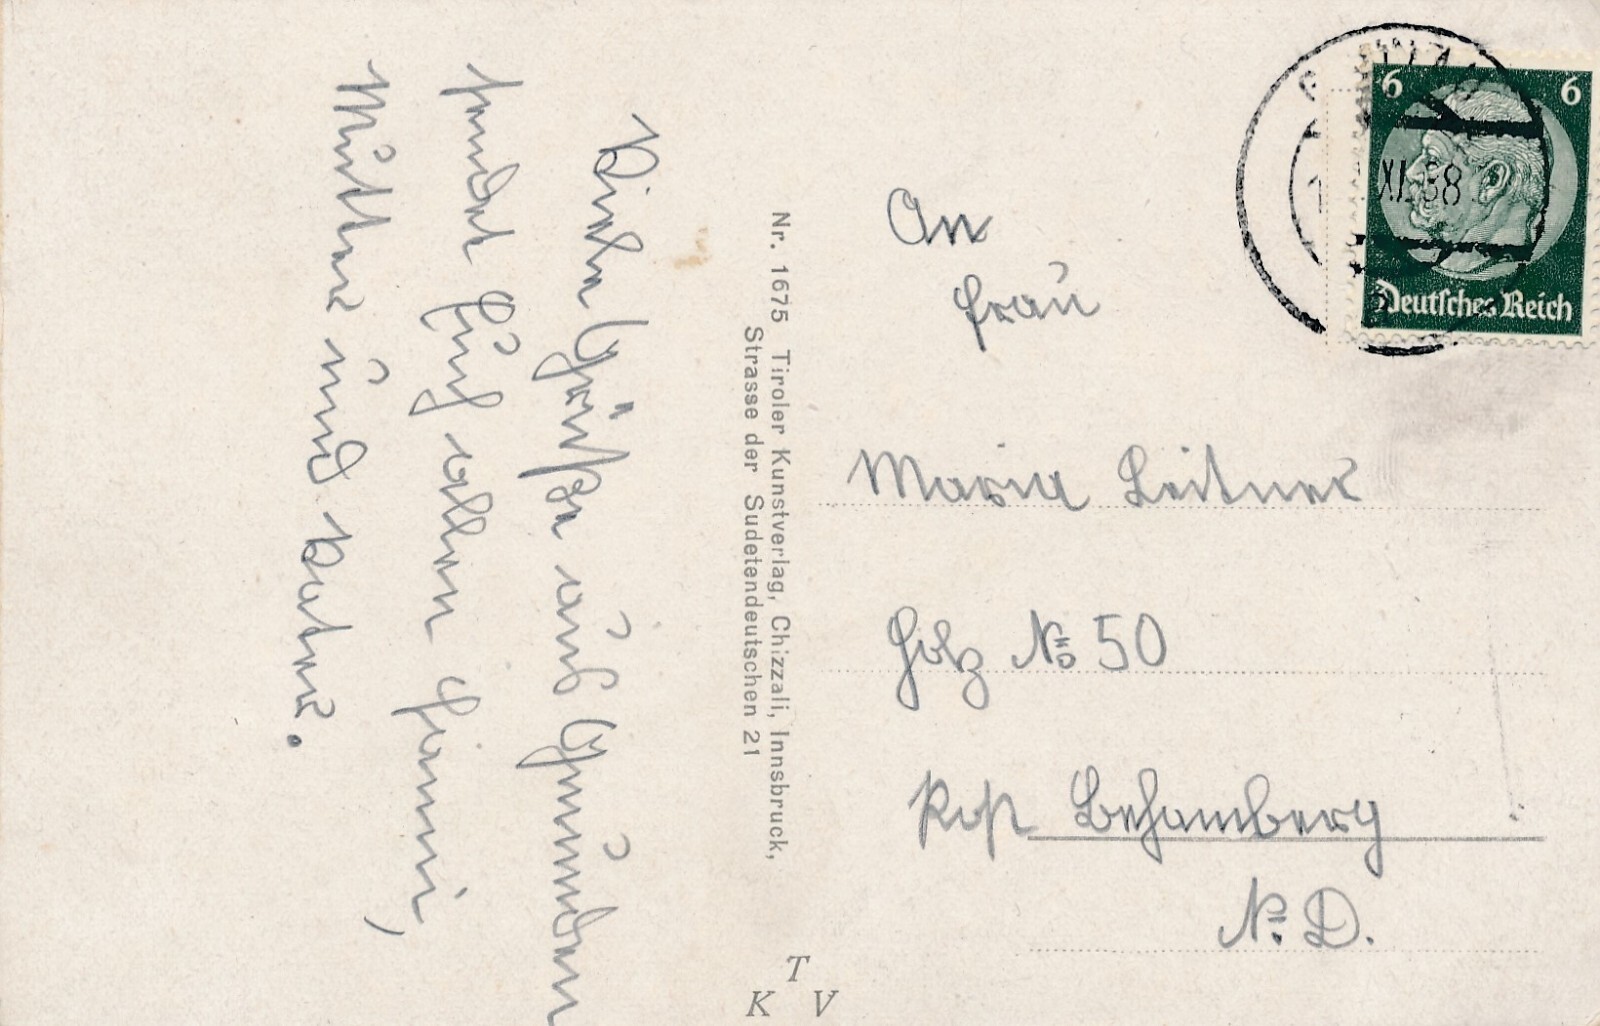 Viele Grüße aus Gmunden
sendet Euch allen Hanni,
Mutter und Vater.
Nr. 1675 Tiroler Kunstverlag, Chizzali, Innsbruck,
Strasse der Sudetendeutschen 21
T
K V
6 6
XI.38
Deutsches Reich
An
Frau
Maria Leitner
Holz No 50
Post Behamberg
N. D.